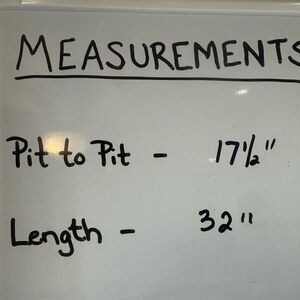 MEASUREMENTS
Pit to Pit - 17½"
Length - 32"